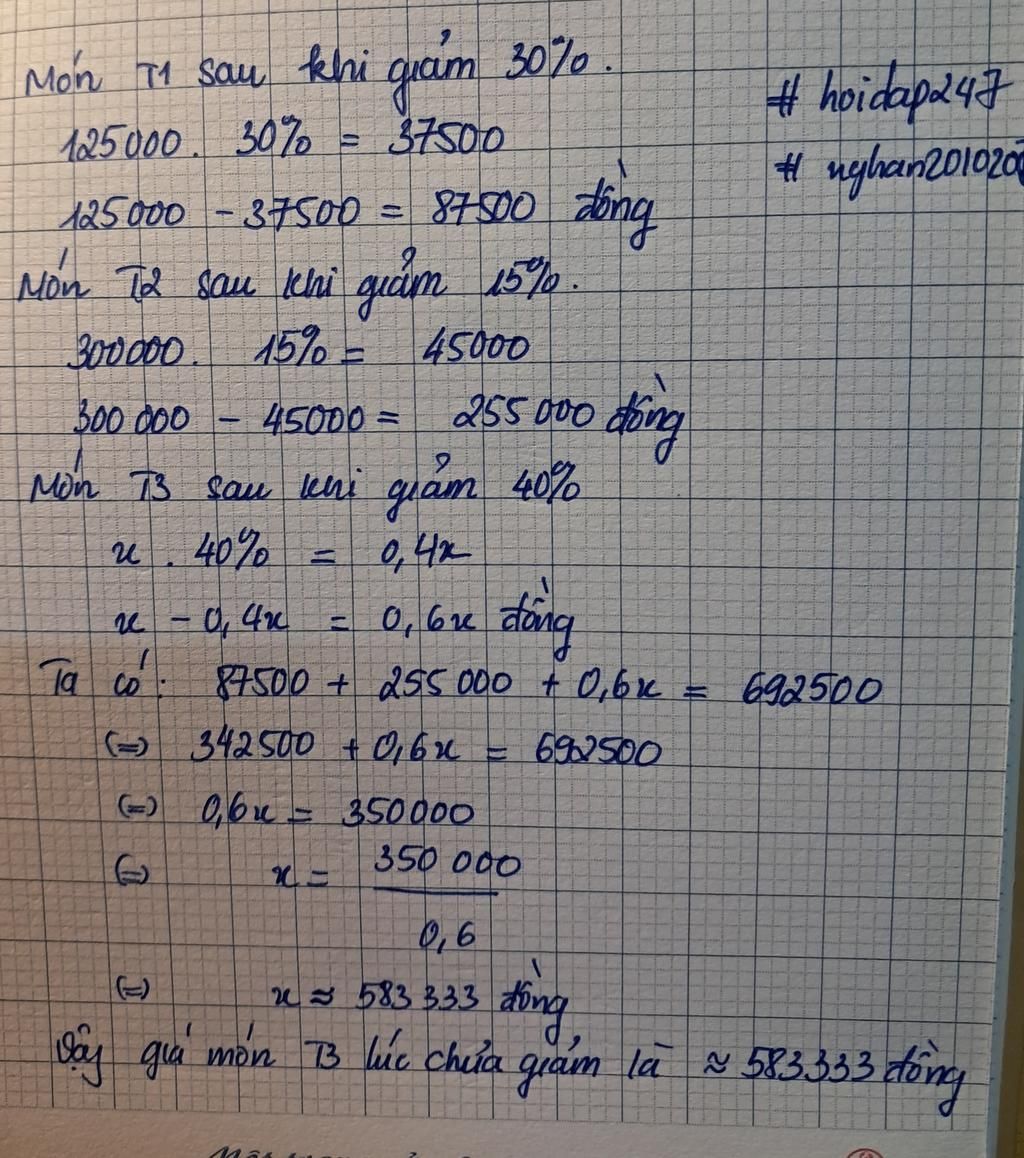 Món T1 sau khi giảm 30%.
# hoidap247
125000. 30% = 37500
# nghan201020
125000 - 37500 = 87500 đồng
Món T2 sau khi giảm 15%.
300000. 15% = 45000
300 000 - 45000 = 255 000 đồng
Món T3 sau khi giảm 40%
x . 40% = 0,4x
x - 0,4x = 0,6x đồng
Ta có: 87500 + 255 000 + 0,6x = 692500
(=) 342500 + 0,6x = 692500
(=) 0,6x = 350000
(=) x = 350 000
0,6
(=) x ≈ 583 333 đồng
Vậy giá món T3 lúc chưa giảm là ≈ 583333 đồng